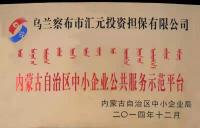 乌兰察布市汇元投资担保有限公司
内蒙古自治区中小企业公共服务示范平台
内蒙古自治区中小企业局
二〇一四年十二月